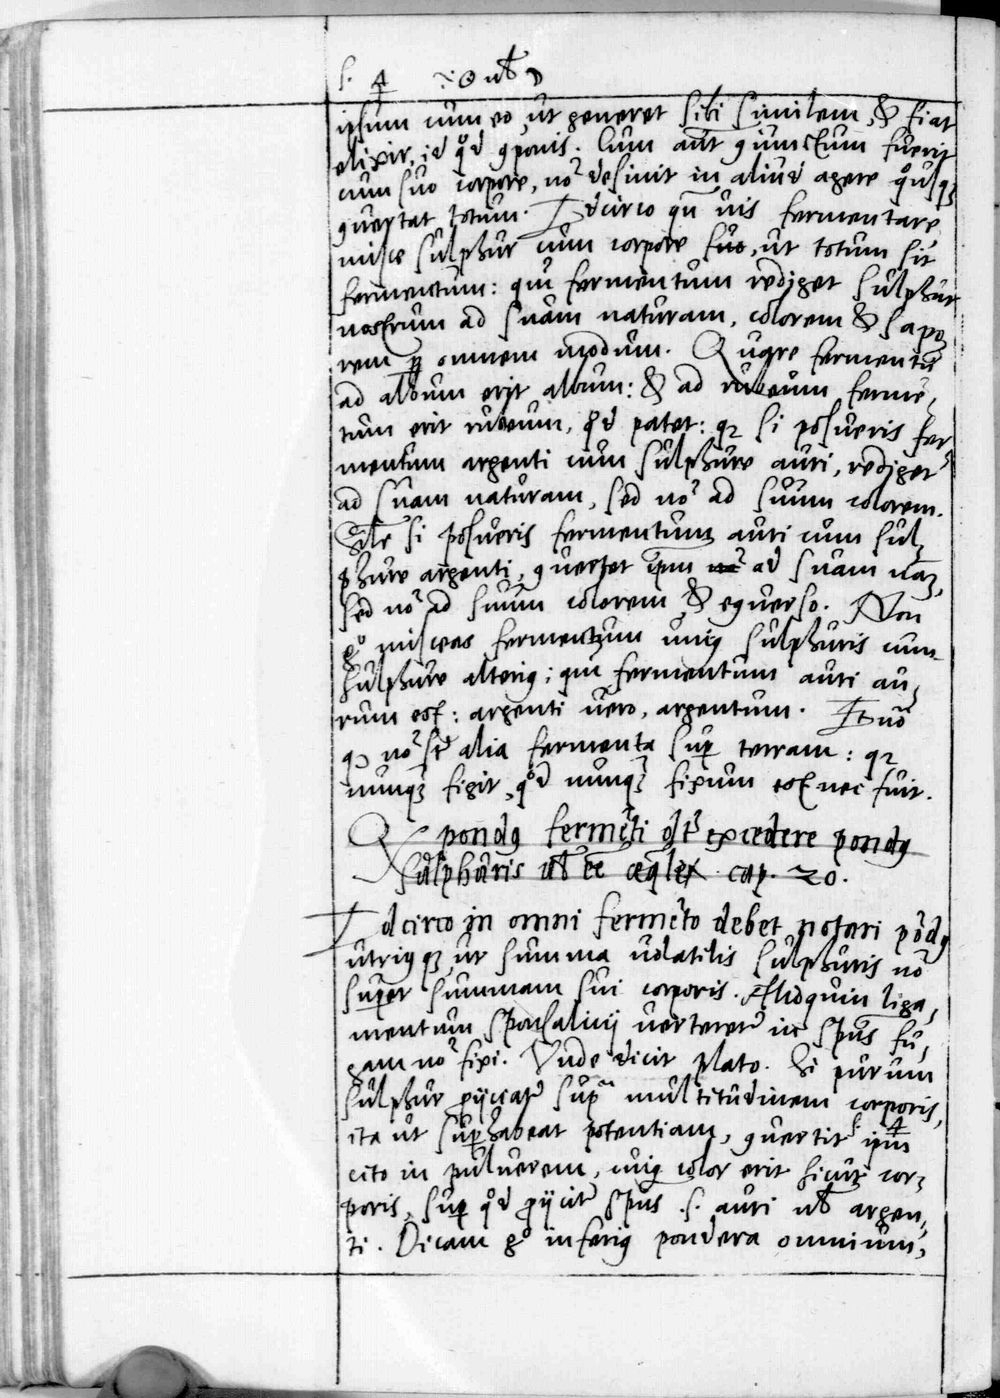 s. 🜍 ∴ ☉ ul̃ ☽
ipsum cum eo, ut generet sibi similem, & fiat
elixir, id qd 9ponis. Cum aut 9iunctum fuerit
cum suo corpore, nõ desinit in aliud agere
9uertat totum. Idcirco qñ uis fermentare
misce sulphur cum corpore suo, ut totum sit
fermentum: qm fermentum rediget sulphur
nostrum ad suam naturam, colorem & sapo
rem ꝑ omnem modum. Quare fermentũ
ad album erit album: & ad rubeum fermẽ,
tum erit rubeum, qd patet: qꝛ si posueris fer
mentum argenti cum sulphure auri, rediget
ad suam naturam, sed nõ ad suum colorem.
Sil̃r si posueris fermentum auri cum sul,
phure argenti, 9uertet ipm ad suam nãm,
sed nõ ad suum colorem & e9uerso. Non
gº misceas fermentum uniꝰ sulphuris cum
sulphure alteriꝰ; qm fermentum auri au,
rum est: argenti uero, argentum.
qꝫ nõ st̃ alia fermenta suꝑ terram: qꝛ
nunqꝫ figit, qd nunqꝫ fixum est nec fuit.
Qꝫ pondꝰ fermẽti dꝫ excedere pondꝰ
sulphuris ul̃ ẽẽ æq̃le. cap. 20.
Idcirco in omni fermẽto debet notari põdꝰ
utriusqꝫ, ut summa uolatilis sulphuris nõ
superet summam sui corporis. Alioquin liga,
mentum sponsalitij uerteretr̃ in spũs fu,
gam nõ fixi. Vnde dicit plato. Si purum
sulphur ꝓijciatr̃ supra multitudinem corporis,
ita ut suꝑhabeat potentiam, 9uertit s. 🜍 ipm
cito in puluerem, cuiꝰ color erit sicut cor,
poris, suꝑ qd ꝓijcitr̃ spũs .s. auri ul̃ argen,
ti. Dicam gº inferiꝰ pondera omnium,